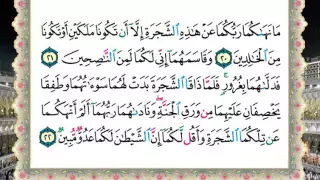 مَا نَهَىٰكُمَا رَبُّكُمَا عَنْ هَٰذِهِ ٱلشَّجَرَةِ إِلَّآ أَن تَكُونَا مَلَكَيْنِ أَوْ تَكُونَا
مِنَ ٱلْخَٰلِدِينَ ٢٠ وَقَاسَمَهُمَآ إِنِّى لَكُمَا لَمِنَ ٱلنَّٰصِحِينَ ٢١
فَدَلَّىٰهُمَا بِغُرُورٍ ۚ فَلَمَّا ذَاقَا ٱلشَّجَرَةَ بَدَتْ لَهُمَا سَوْءَٰتُهُمَا وَطَفِقَا
يَخْصِفَانِ عَلَيْهِمَا مِن وَرَقِ ٱلْجَنَّةِ ۖ وَنَادَىٰهُمَا رَبُّهُمَآ أَلَمْ أَنْهَكُمَا
عَن تِلْكُمَا ٱلشَّجَرَةِ وَأَقُل لَّكُمَآ إِنَّ ٱلشَّيْطَٰنَ لَكُمَا عَدُوٌّ مُّبِينٌ ٢٢